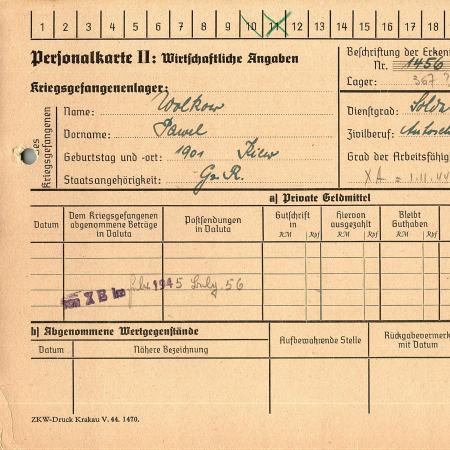 1 2 3 4 5 6 7 8 9 10 11 12 13 14 15 16 17 18
Personalkarte II: Wirtschaftliche Angaben
Beschriftung der Erken
Nr. 1456
Kriegsgefangenenlager:
Lager: 367
des Kriegsgefangenen
Name: Wolkow
Dienstgrad: Solda
Vorname: Pawel
Zivilberuf:
Geburtstag und -ort: 1901 Kiew
Grad der Arbeitsfähig
Staatsangehörigkeit:
X A = 1.11.44
a) Private Geldmittel
Datum
Dem Kriegsgefangenen abgenommene Beträge in Valuta
Postsendungen in Valuta
Gutschrift in RM Rpf
Hiervon ausgezahlt RM Rpf
Bleibt Guthaben RM Rpf
X B
1945
56
b) Abgenommene Wertgegenstände
Datum
Nähere Bezeichnung
Aufbewahrende Stelle
Rückgabevermerk mit Datum
ZKW-Druck Krakau V. 44. 1470.